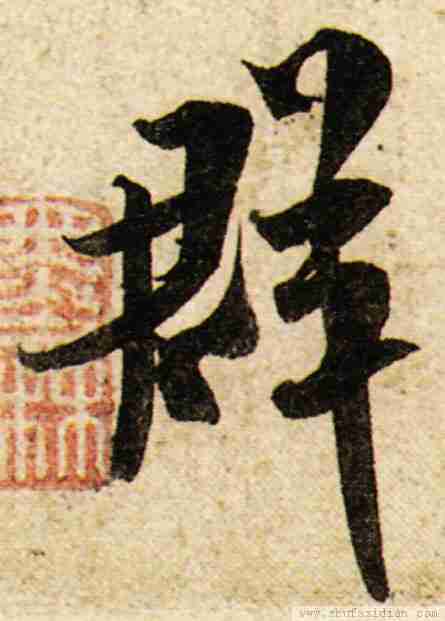 群
www.shufazidian.com